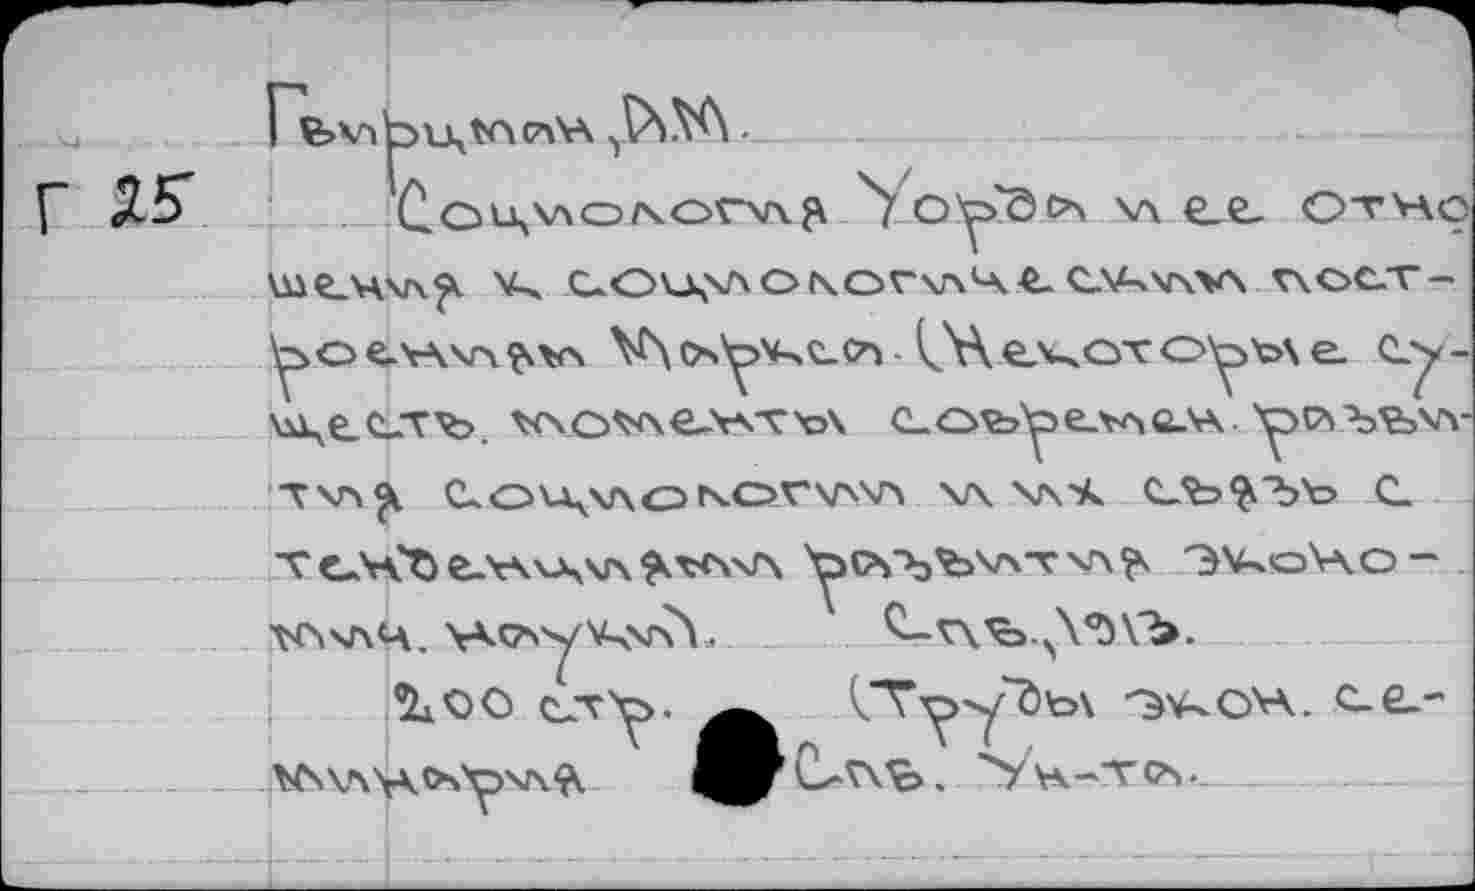 Гвирцман, И.М.
Г 25 Социология Уорда и ее отно
шения к социологическим пост-
роениям Маркса. (Некоторые су-
щеСтв. моменты соврємен. разви-
тия социологии и их связь с
тенденциями развития эконо-
мич. науки). Спб., 1913.
200 стр. (Труды экон. се-
минария Спб. Ун-та.